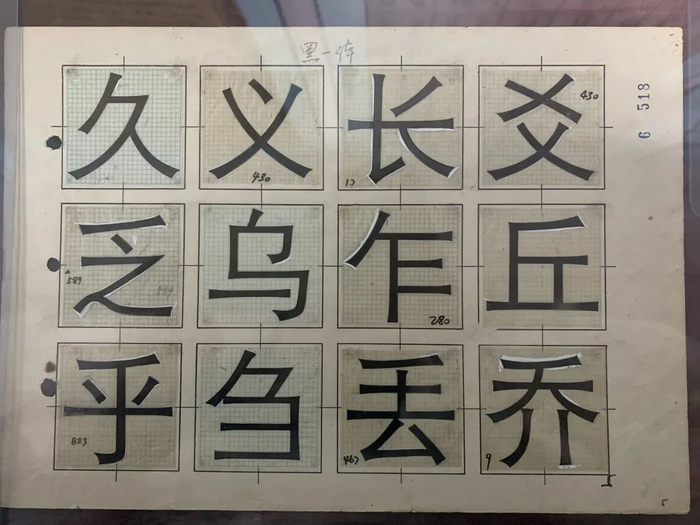 黑一体
6 518
久 义 长 爻
430 12 430
乏 乌 乍 丘
589 280
乎 刍 丢 乔
823 467 9
5